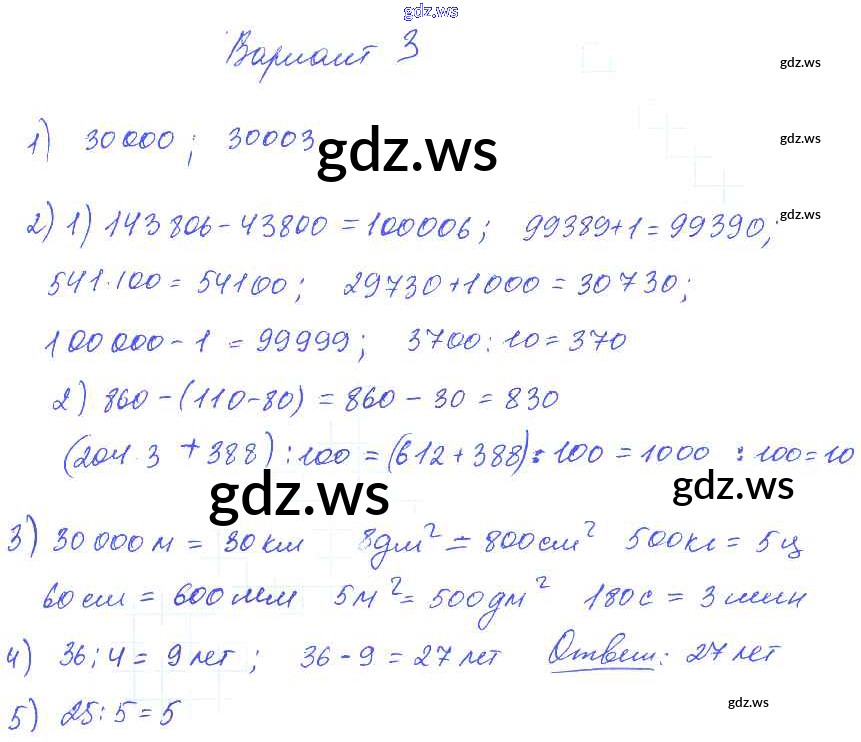 gdz.ws
Вариант 3
gdz.ws
1) 30000; 30003
gdz.ws
gdz.ws
gdz.ws
2) 1) 143806-43800=100006; 99389+1=99390;
541·100=54100; 29730+1000=30730;
100000-1=99999; 3700:10=370
2) 860-(110-80)=860-30=830
(204·3+388):100=(612+388):100=1000:100=10
gdz.ws
gdz.ws
3) 30000м=30км 8дм²=800см² 500кг=5ц
60см=600мм 5м²=500дм² 180с=3мин
4) 36:4=9лет; 36-9=27лет Ответ: 27лет
gdz.ws
5) 25:5=5